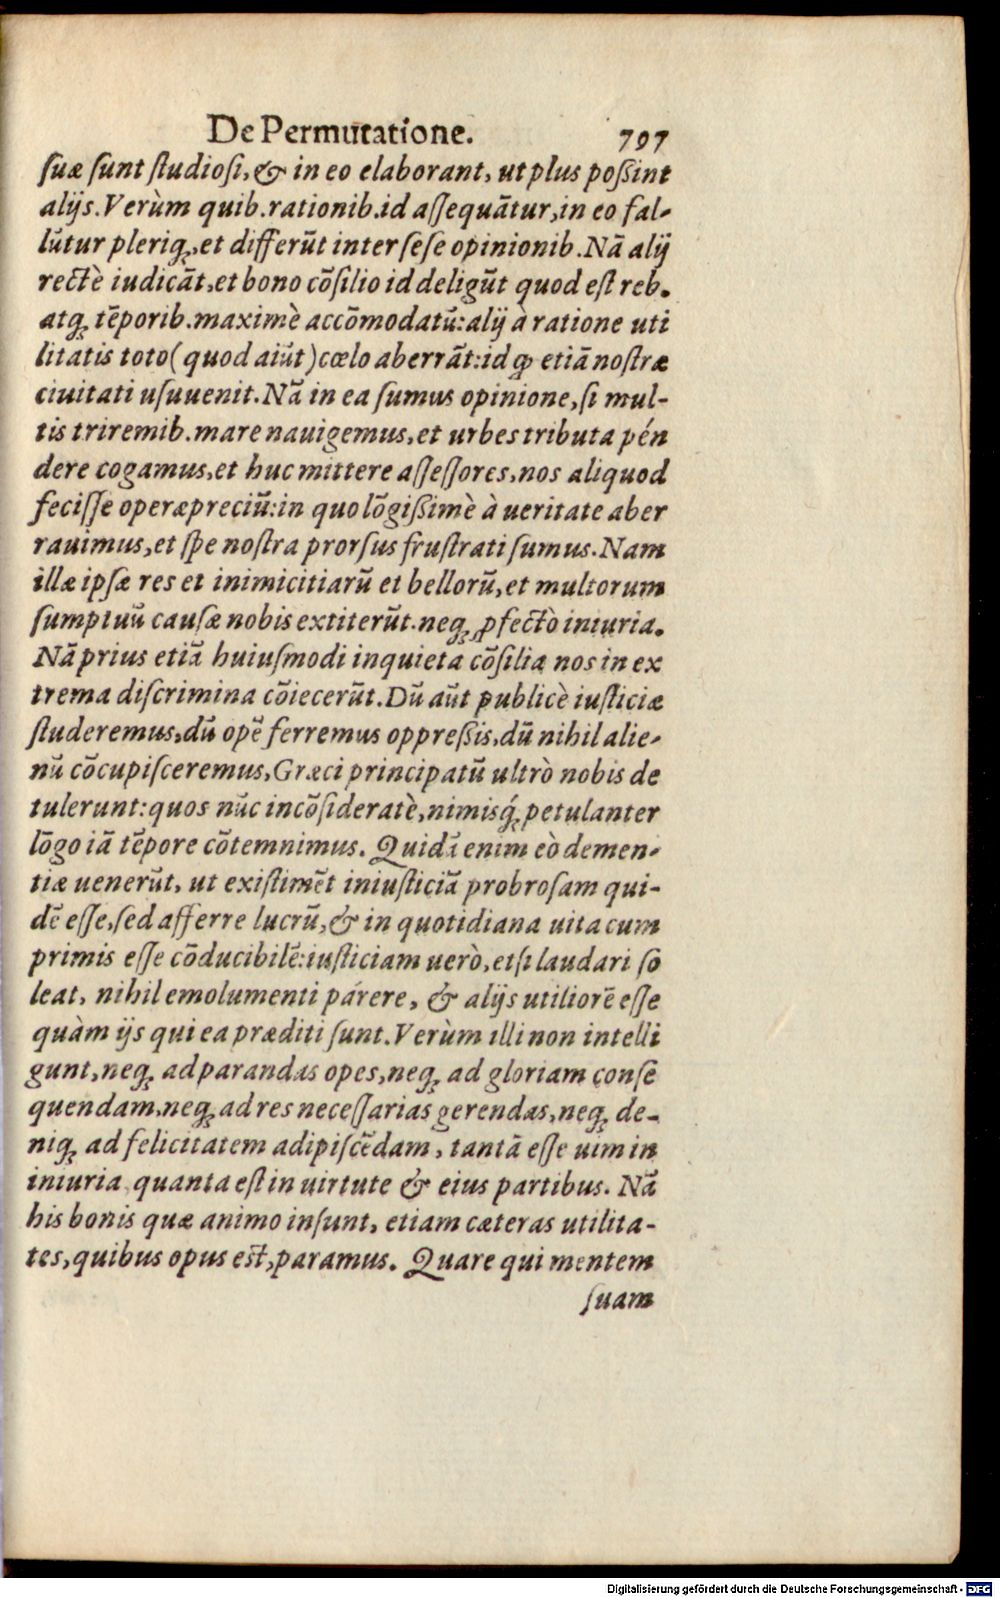 De Permutatione. 797
suæ sunt studiosi, & in eo elaborant, ut plus poßint
alijs. Verùm quib. rationib. id assequãtur, in eo fal-
lũtur pleriq;, et differũt inter sese opinionib. Nã alij
rectè iudicãt, et bono cõsilio id deligũt quod est reb.
atq; tẽporib. maximè accõmodatũ: alij à ratione uti
litatis toto (quod aiũt) cœlo aberrãt: id ꝙ etiã nostræ
ciuitati usuuenit. Nã in ea sumus opinione, si mul-
tis triremib. mare nauigemus, et urbes tributa pén
dere cogamus, et huc mittere assessores, nos aliquod
fecisse operæpreciũ: in quo lõgißimè à ueritate aber
rauimus, et spe nostra prorsus frustrati sumus. Nam
illæ ipsæ res et inimicitiarũ et bellorũ, et multorum
sumptuũ causæ nobis extiterũt. neq; ꝓfectò iniuria.
Nã prius etiã huiusmodi inquieta cõsilia nos in ex
trema discrimina cõiecerũt. Dũ aũt publicè iusticiæ
studeremus, dũ opẽ ferremus oppreßis, dũ nihil alie-
nũ cõcupisceremus, Græci principatũ ultrò nobis de
tulerunt: quos nũc incõsideratè, nimisq́; petulanter
lõgo iã tẽpore cõtemnimus. Quidã enim eò demen-
tiæ uenerũt, ut existimẽt iniusticiã probrosam qui-
dẽ esse, sed afferre lucrũ, & in quotidiana uita cum
primis esse cõducibilẽ: iusticiam uerò, etsi laudari so
leat, nihil emolumenti párere, & alijs utiliorẽ esse
quàm ijs qui ea præditi sunt. Verùm illi non intelli
gunt, neq; ad parandas opes, neq; ad gloriam conse
quendam, neq; ad res necessarias gerendas, neq; de-
niq; ad felicitatem adipiscẽdam, tantã esse uim in
iniuria quanta est in uirtute & eius partibus. Nã
his bonis quæ animo insunt, etiam cæteras utilita-
tes, quibus opus est, paramus. Quare qui mentem
suam
Digitalisierung gefördert durch die Deutsche Forschungsgemeinschaft - DFG